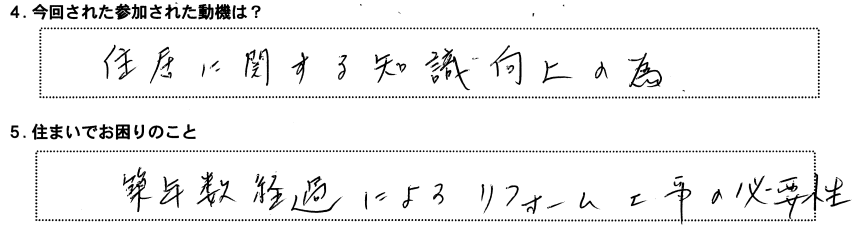 4. 今回された参加された動機は？
住居に関する知識向上の為
5. 住まいでお困りのこと
築年数経過によるリフォーム工事の必要性